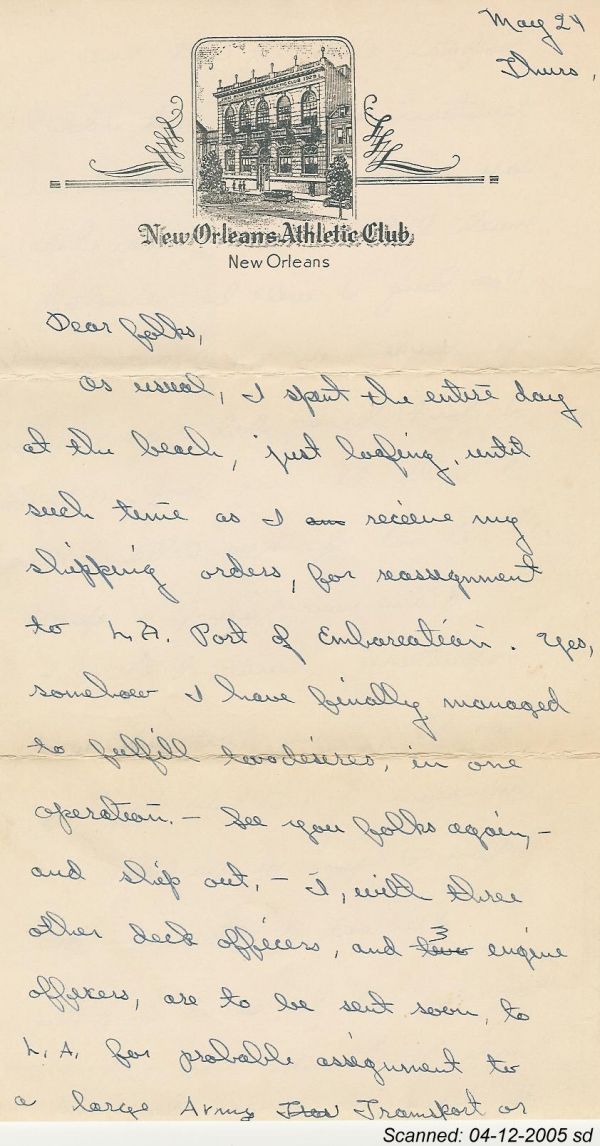 May 24
Thurs,
NEW ORLEANS ATHLETIC CLUB 1929
New Orleans Athletic Club
New Orleans
Dear folks,
As usual, I spent the entire day
at the beach, just loafing, until
such time as I am receive my
shipping orders, for reassignment
to L.A. Port of Embarcation. Yes,
somehow I have finally managed
to fulfill two desires, in one
operation. – See you folks again, –
and ship out, – I, with three
other deck officers, and two 3 engine
officers, are to be sent soon, to
L.A. for probable assignment to
a large Army Transport or
Scanned: 04-12-2005 sd